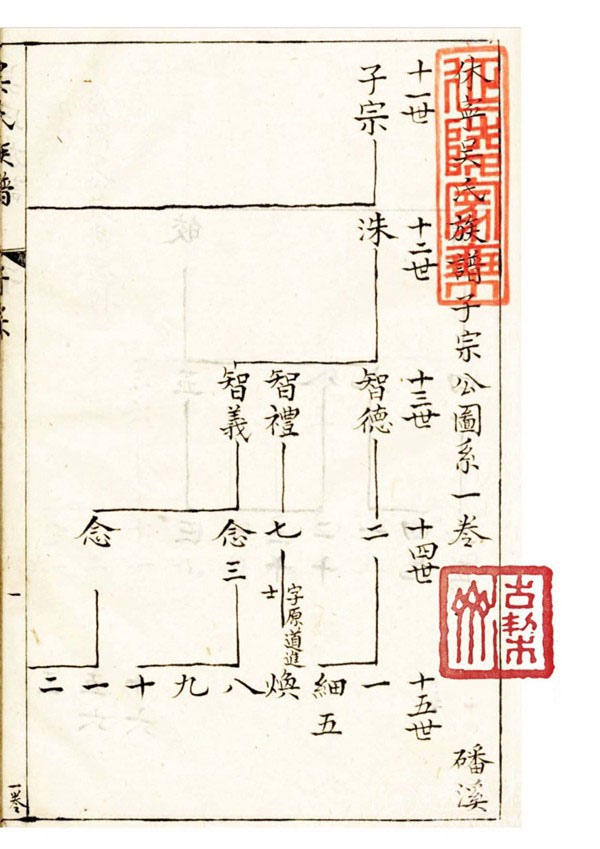 休寧吳氏族譜子宗公圖系一卷
磻溪
十一世
子宗
十二世
洙
十三世
智德
智禮
智義
十四世
二
七
念三
念
十五世
一
細五
煥
字原道進士
八
九
十
一
二
吳氏族譜
子宗
一
一卷
古黎